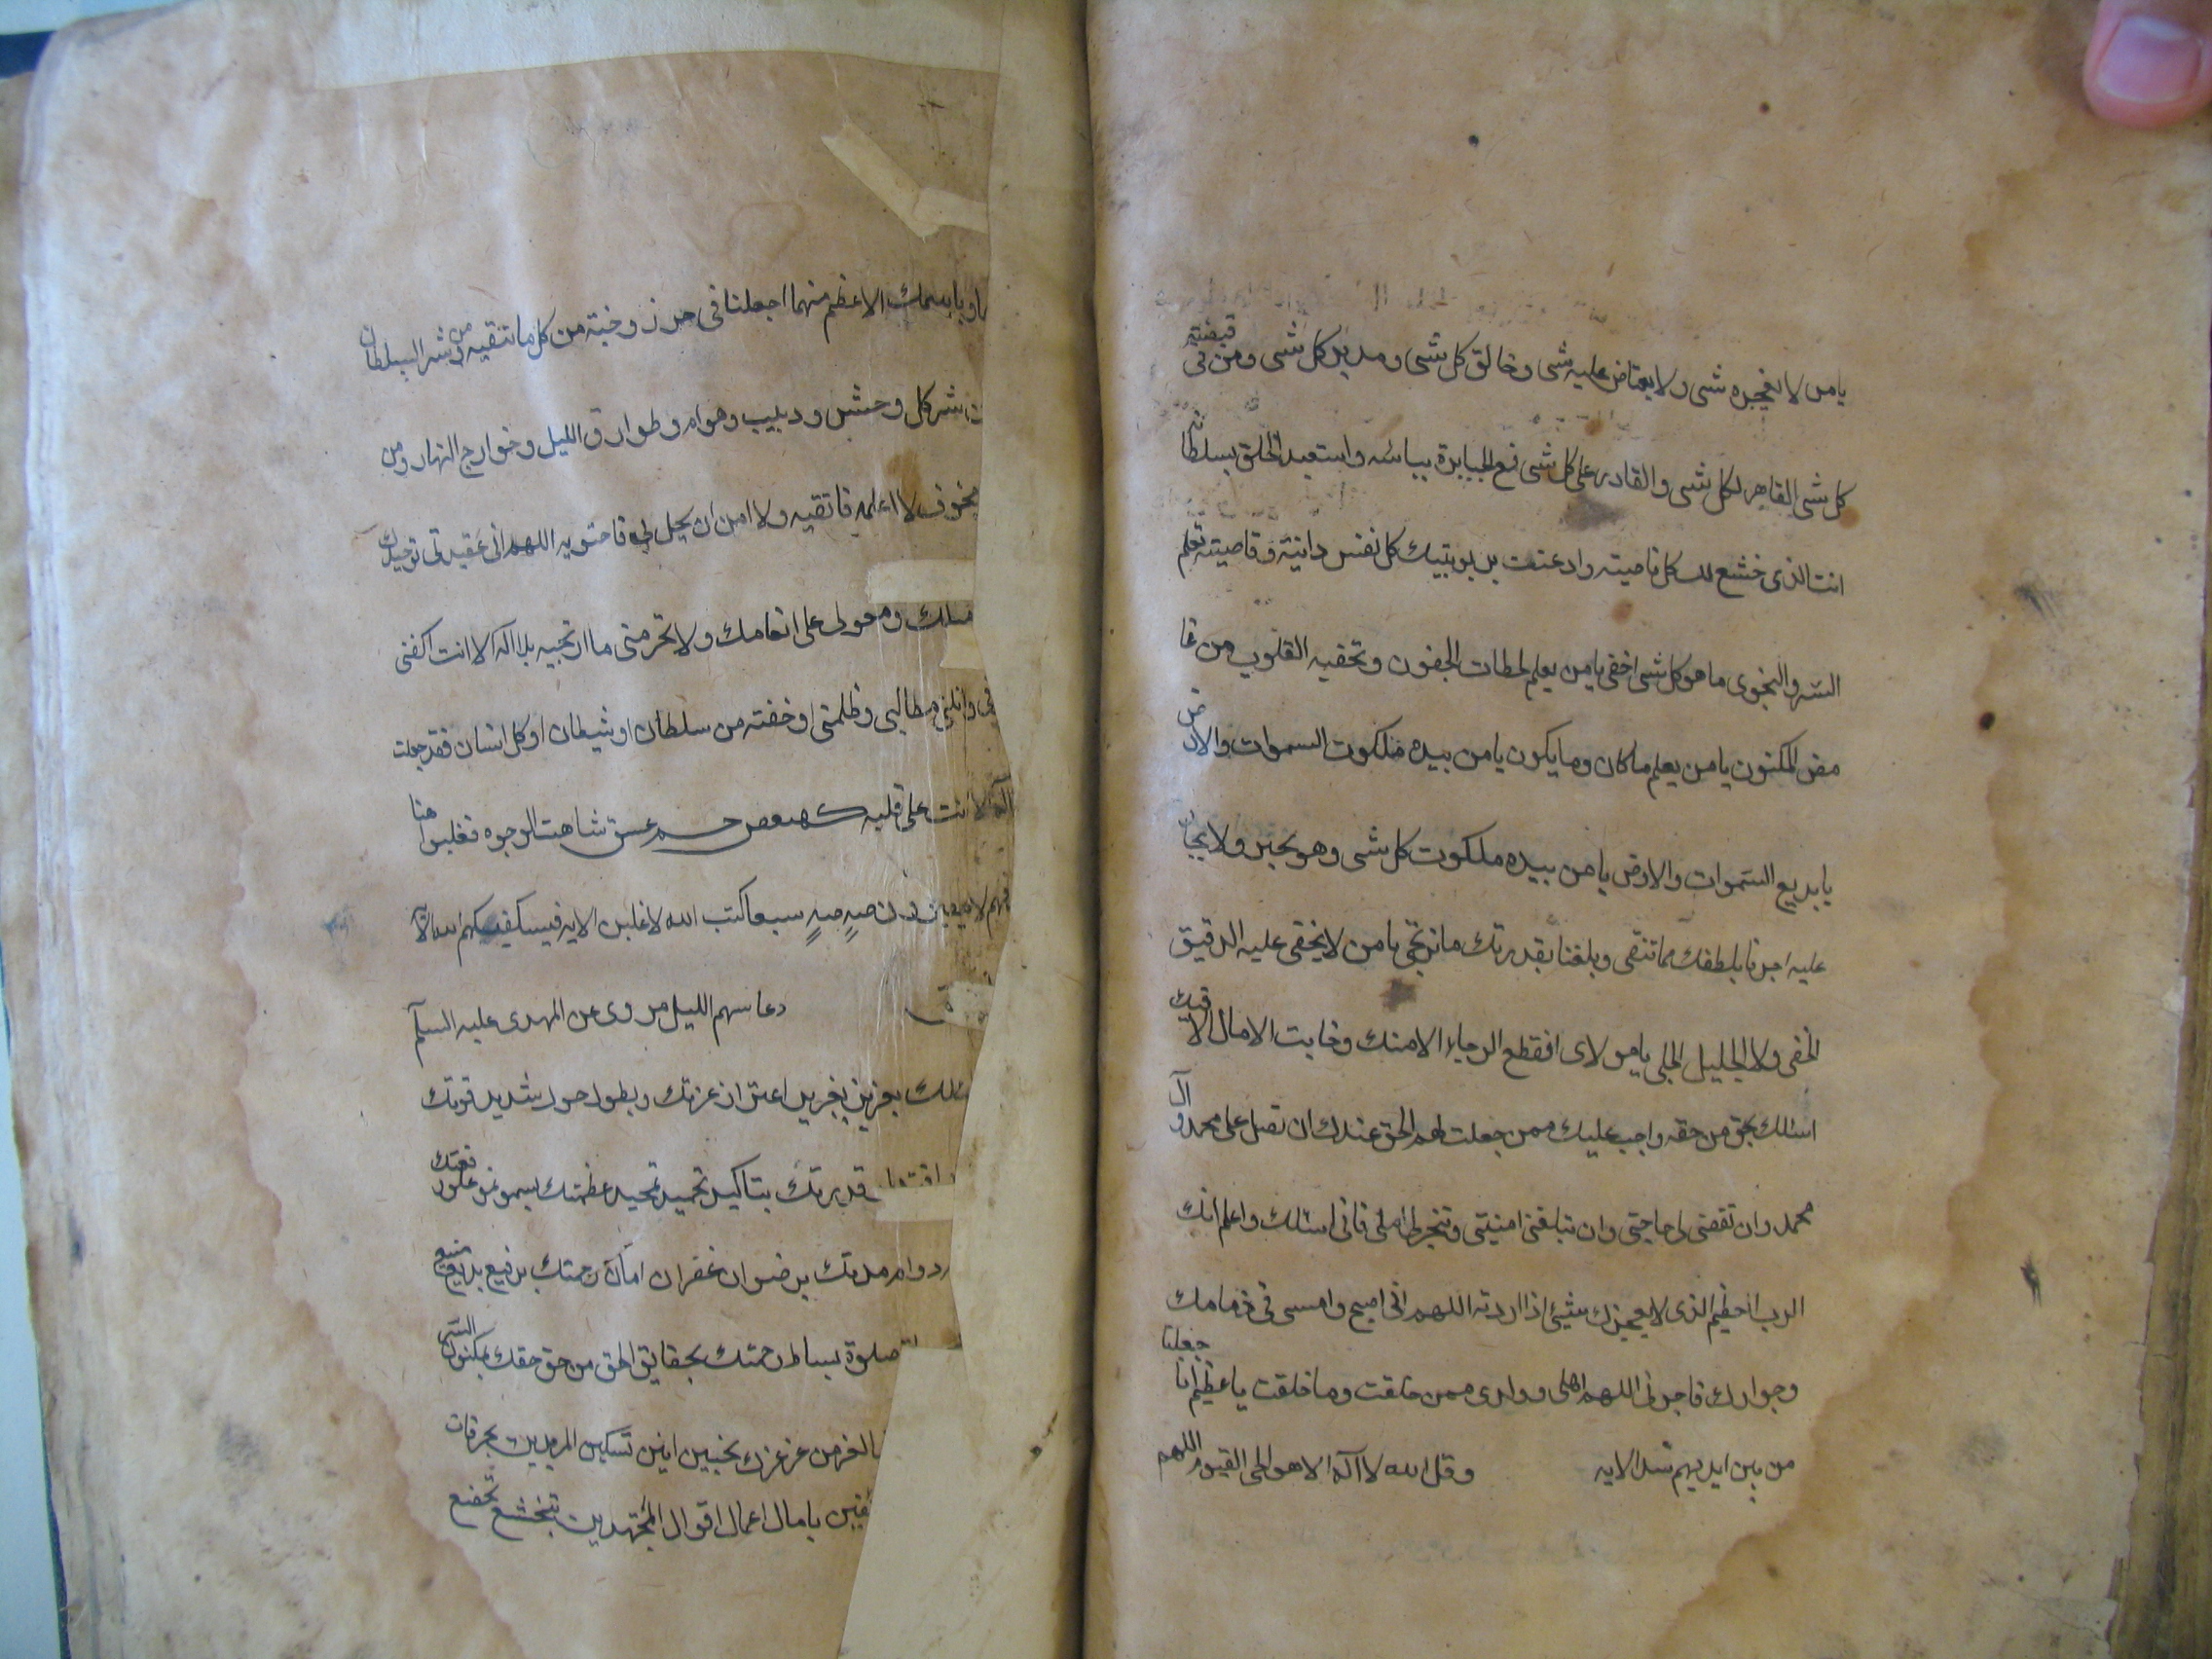 يا من لا يعجزه شى ولا يعتاض عليه شى وخالق كل شى ومدبر كل شى ومن فى قبضته
كل شى القاهر لكل شى والقادر على كل شى قمع الجبابرة بباسه واستعبد الخلق بسلطانه
انت الذى خشع لك كل ناصيته واذعنت بربوبيتك كل نفس دانية وقاصيته تعلم
السر والنجوى ما هو كل شى اخفى يا من يعلم لحظات الجفون وتخفيه القلوب من غا
مض المكنون يا من يعلم ما كان وما يكون يا من بيده ملكوت السموات والارض
يا بديع السموات والارض يا من بيده ملكوت كل شى وهو يجير ولا يجار
عليه اجرنا بلطفك مما نتقى وبلغنا بقدرتك ما نرتجى يا من لا يخفى عليه الدقيق
الخفى ولا الجليل الجلى يا مولاى انقطع الرجاء الا منك وخابت الامال الا فيك
اسئلك بحق من حقه واجب عليك ممن جعلت لهم الحق عندك ان تصل على محمد وآل
محمد وان تقضى لى حاجتى وان تبلغنى امنيتى وتنجز لى املى فانى اسئلك واعلم انك
الرب العظيم الذى لا يعجزك شيئ اذا اردته اللهم انى اصبح وامسى فى ذمامك
وجوارك فاجرنى اللهم اهلى وولدى ممن خلقت وما خلقت يا عظيم انا جعلنا
من بين ايديهم سدا الايه وقل الله لا اله الا هو الحى القيوم اللهم
وباسمك الاعظم منهما اجعلنا فى حرز وجنة من كل ما نتقيه ومن شر السلطان
شر كل وحش ودبيب وهوام وطوارق الليل وخوارج النهار ومن
مخوف لا اعلمه فاتقيه ولا امن ان يحل بى فاحتويه اللهم انى عقيدتى توحيدك
ومعولى على انعامك ولا تحرمنى ما ارتجيه بلا اله الا انت اكفنى
وانلنى مطالبى وظلمنى او خفته من سلطان او شيطان او كل انسان فقد جعلت
اله الا انت على قلبه كهيعص حمعسق شاهت الوجوه فغلبوا هنا
فهم لا صه صه سبعا كتب الله لاغلبن الايه فسيكفيكهم الله الآ
دعا سهم الليل مروى عن المهدى عليه السلم
بعزيز تعزيز اعتزاز عزتك وبطول حول شديد قوتك
قدرتك بتاكيد تحميد تمجيد عظمتك بسمو نمو علو رفعتك
دوام مدتك برضوان غفران امان رحمتك برفيع بديع منيع
صلوة بساط رحمتك بحقايق الحق من حق حقك بمكنون السر
العز من عز عزك بحنين انين تسكين المريدين بحرقات
يا مال اعمال اقوال المجتهدين بتخشع تخضع